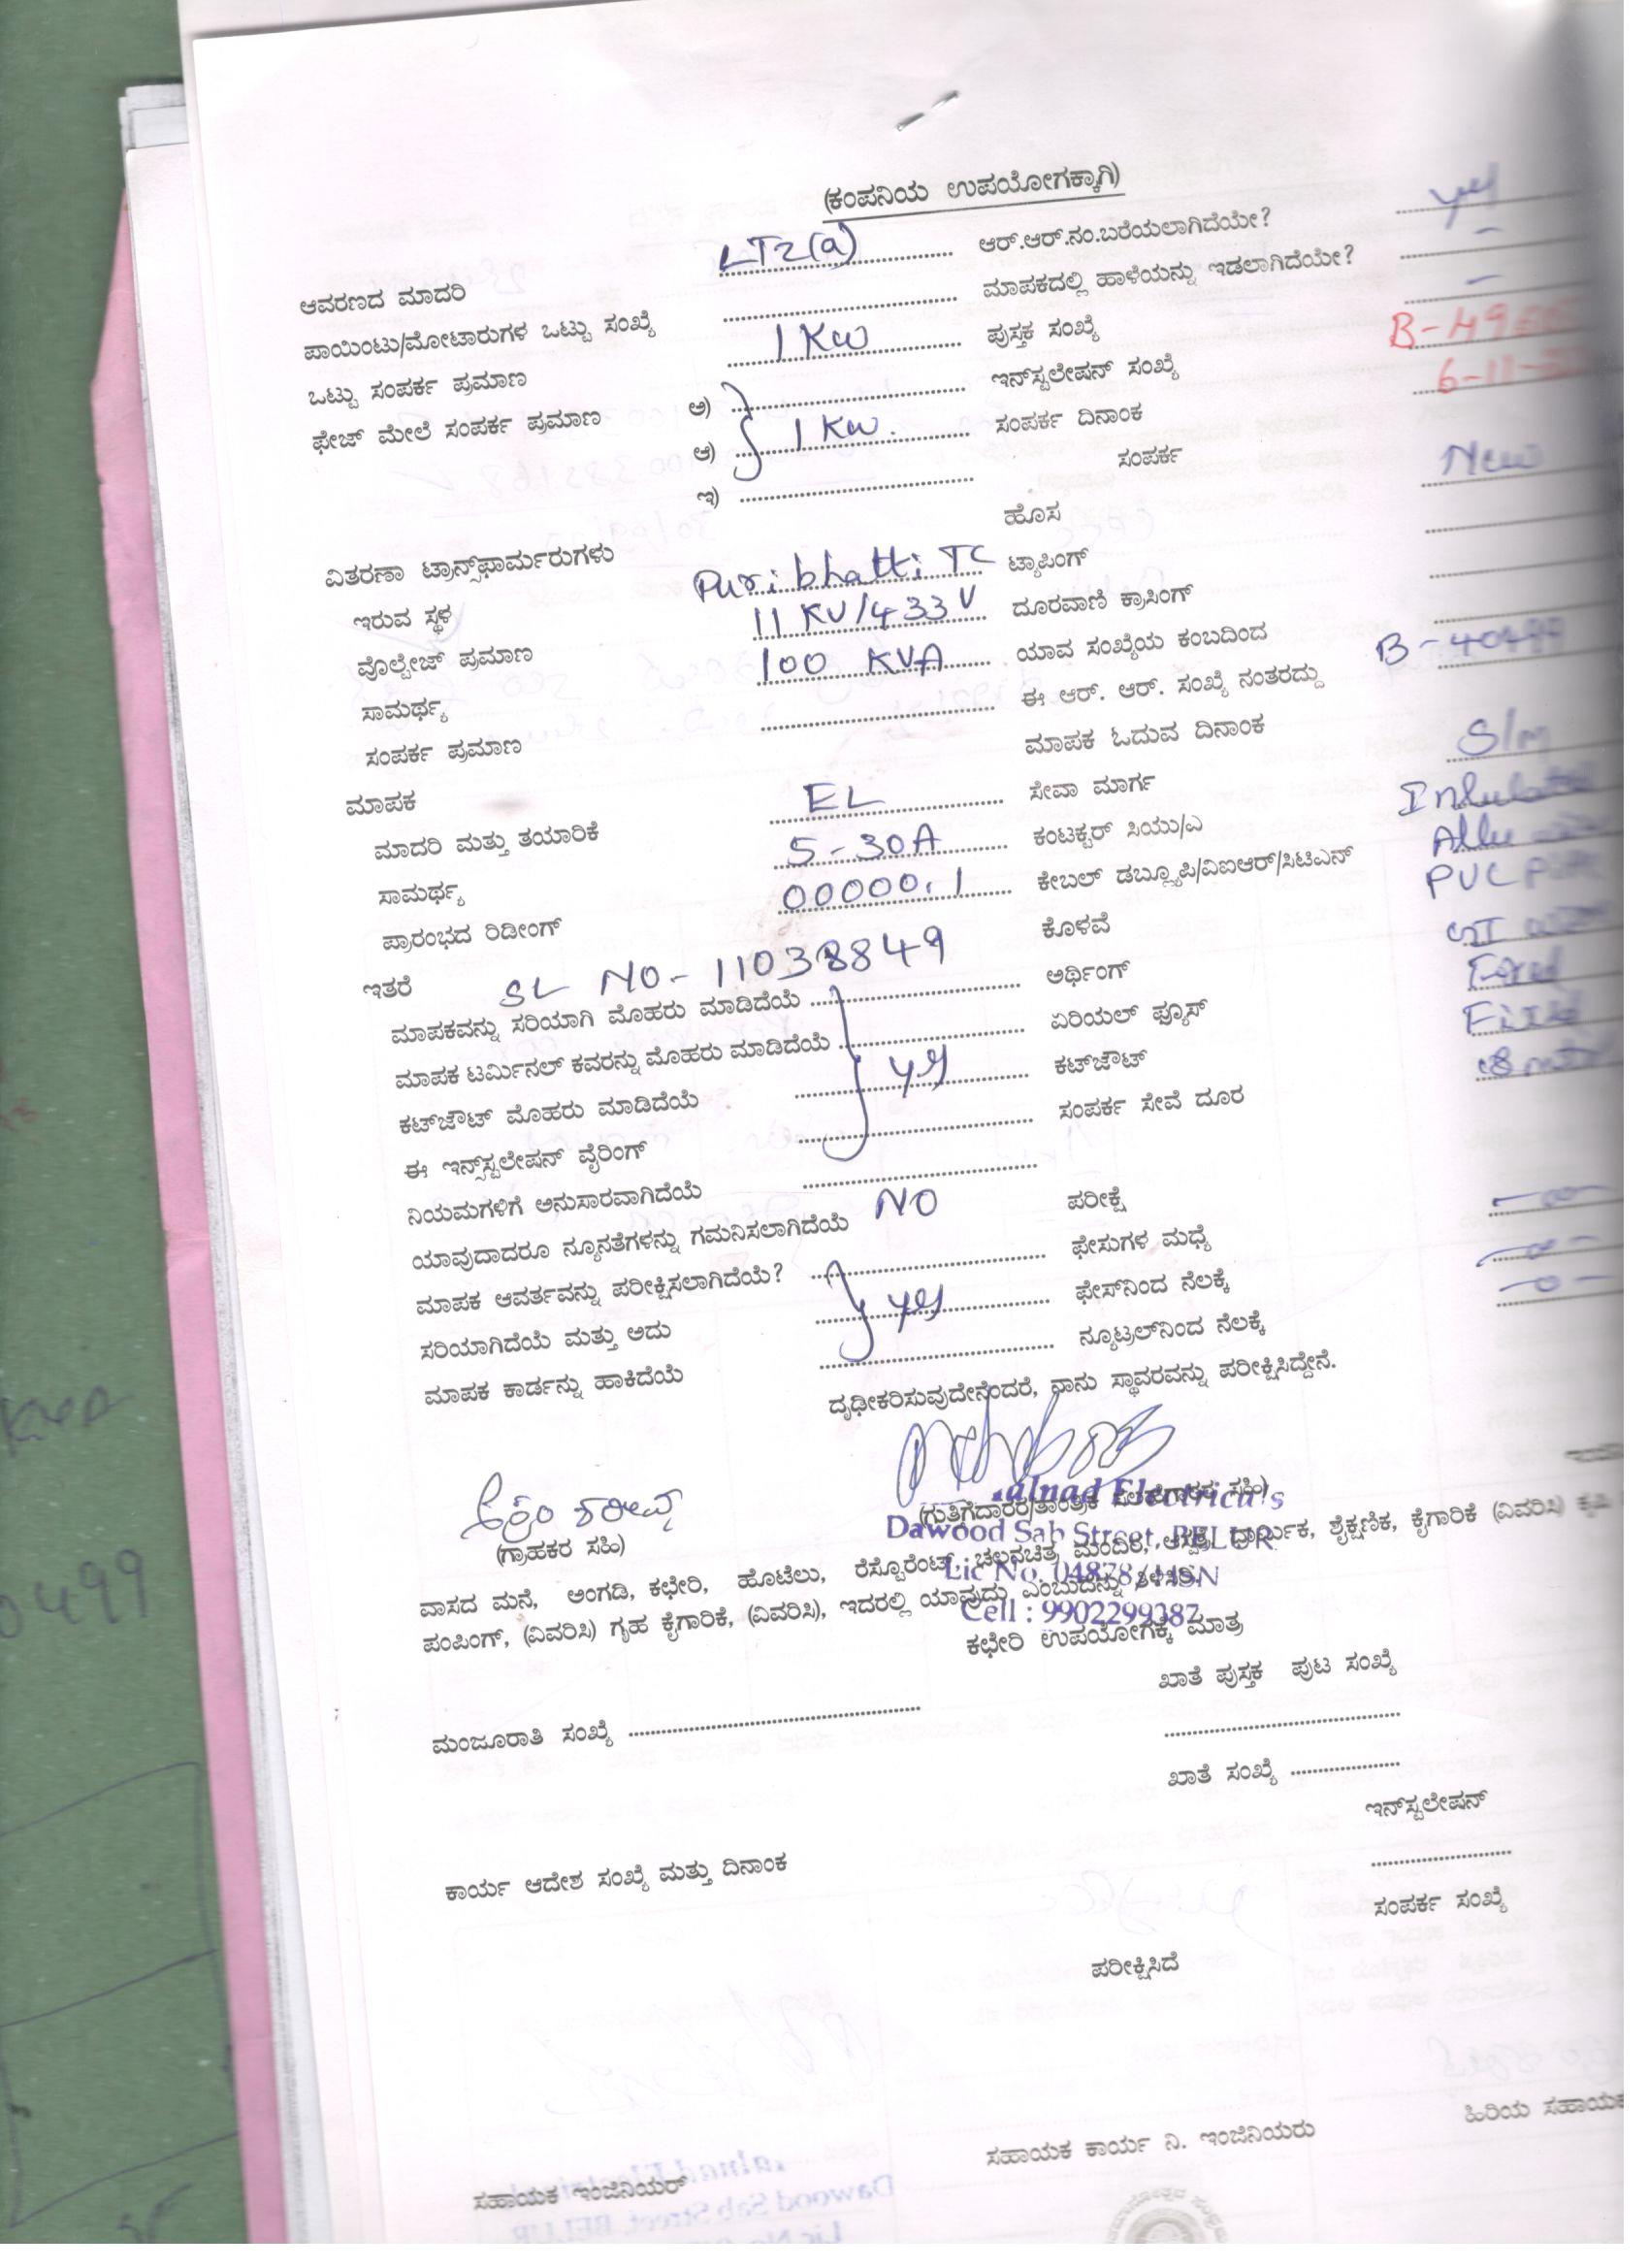 (ಕಂಪನಿಯ ಉಪಯೋಗಕ್ಕಾಗಿ)
ಆವರಣದ ಮಾದರಿ LT2(a) ಆರ್.ಆರ್.ನಂ.ಬರೆಯಲಾಗಿದೆಯೇ? yes
ಪಾಯಿಂಟು/ಮೋಟಾರುಗಳ ಒಟ್ಟು ಸಂಖ್ಯೆ ಮಾಪಕದಲ್ಲಿ ಹಾಳೆಯನ್ನು ಇಡಲಾಗಿದೆಯೇ? -
ಒಟ್ಟು ಸಂಪರ್ಕ ಪ್ರಮಾಣ 1 Kw ಪುಸ್ತಕ ಸಂಖ್ಯೆ -
ಫೇಜ್ ಮೇಲೆ ಸಂಪರ್ಕ ಪ್ರಮಾಣ ಅ) ಇನ್‌ಸ್ಟಲೇಷನ್ ಸಂಖ್ಯೆ
ಆ) 1 Kw. ಸಂಪರ್ಕ ದಿನಾಂಕ 6-11-
ಇ) ಸಂಪರ್ಕ
ಹೊಸ New
ವಿತರಣಾ ಟ್ರಾನ್ಸ್‌ಫಾರ್ಮರುಗಳು ಟ್ಯಾಪಿಂಗ್
ಇರುವ ಸ್ಥಳ Puribhatti TC ದೂರವಾಣಿ ಕ್ರಾಸಿಂಗ್
ವೊಲ್ಟೇಜ್ ಪ್ರಮಾಣ 11 KV/433 V ಯಾವ ಸಂಖ್ಯೆಯ ಕಂಬದಿಂದ
ಸಾಮರ್ಥ್ಯ 100 KVA ಈ ಆರ್. ಆರ್. ಸಂಖ್ಯೆ ನಂತರದ್ದು B-40499
ಸಂಪರ್ಕ ಪ್ರಮಾಣ ಮಾಪಕ ಓದುವ ದಿನಾಂಕ
ಮಾಪಕ ಸೇವಾ ಮಾರ್ಗ S/m
ಮಾದರಿ ಮತ್ತು ತಯಾರಿಕೆ EL ಕಂಟಕ್ಟರ್ ಸಿಯು/ಎ
ಸಾಮರ್ಥ್ಯ 5-30A ಕೇಬಲ್ ಡಬ್ಲ್ಯೂಪಿ/ವಿಐಆರ್/ಸಿಟಿಎನ್
ಪ್ರಾರಂಭದ ರಿಡೀಂಗ್ 00000.1 ಕೊಳವೆ PVC
ಇತರೆ SL NO-11038849 ಅರ್ಥಿಂಗ್
ಮಾಪಕವನ್ನು ಸರಿಯಾಗಿ ಮೊಹರು ಮಾಡಿದೆಯೆ ಏರಿಯಲ್ ಫ್ಯೂಸ್
ಮಾಪಕ ಟರ್ಮಿನಲ್ ಕವರನ್ನು ಮೊಹರು ಮಾಡಿದೆಯೆ ಕಟ್‌ಔಟ್
ಕಟ್‌ಔಟ್ ಮೊಹರು ಮಾಡಿದೆಯೆ yes ಸಂಪರ್ಕ ಸೇವೆ ದೂರ
ಈ ಇನ್ಸ್‌ಸ್ಟಲೇಷನ್ ವೈರಿಂಗ್
ನಿಯಮಗಳಿಗೆ ಅನುಸಾರವಾಗಿದೆಯೆ
ಯಾವುದಾದರೂ ನ್ಯೂನತೆಗಳನ್ನು ಗಮನಿಸಲಾಗಿದೆಯೆ NO ಪರೀಕ್ಷೆ
ಮಾಪಕ ಆವರ್ತವನ್ನು ಪರೀಕ್ಷಿಸಲಾಗಿದೆಯೆ? ಫೇಸುಗಳ ಮಧ್ಯೆ
ಸರಿಯಾಗಿದೆಯೆ ಮತ್ತು ಅದು yes ಫೇಸ್‌ನಿಂದ ನೆಲಕ್ಕೆ
ಮಾಪಕ ಕಾರ್ಡನ್ನು ಹಾಕಿದೆಯೆ ನ್ಯೂಟ್ರಲ್‌ನಿಂದ ನೆಲಕ್ಕೆ
ದೃಢೀಕರಿಸುವುದೇನೆಂದರೆ, ನಾನು ಸ್ಥಾವರವನ್ನು ಪರೀಕ್ಷಿಸಿದ್ದೇನೆ.
alnad Electricals
(ಗ್ರಾಹಕರ ಸಹಿ)
Dawood Sab Street, BELUR
Lic No. 04878/HSN
Cell : 9902299387
ವಾಸದ ಮನೆ, ಅಂಗಡಿ, ಕಛೇರಿ, ಹೊಟೆಲು, ರೆಸ್ಟೊರೆಂಟ್, ಚಲನಚಿತ್ರ ಮಂದಿರ, ಆಸ್ಪತ್ರೆ, ಧಾರ್ಮಿಕ, ಶೈಕ್ಷಣಿಕ, ಕೈಗಾರಿಕೆ (ವಿವರಿಸಿ) ಕೃಷಿ
ಪಂಪಿಂಗ್, (ವಿವರಿಸಿ) ಗೃಹ ಕೈಗಾರಿಕೆ, (ವಿವರಿಸಿ), ಇದರಲ್ಲಿ ಯಾವುದು ಎಂಬುದನ್ನು ತಿಳಿಸಿರಿ.
ಕಛೇರಿ ಉಪಯೋಗಕ್ಕೆ ಮಾತ್ರ
ಖಾತೆ ಪುಸ್ತಕ ಪುಟ ಸಂಖ್ಯೆ
ಮಂಜೂರಾತಿ ಸಂಖ್ಯೆ
ಖಾತೆ ಸಂಖ್ಯೆ
ಇನ್‌ಸ್ಟಲೇಷನ್
ಕಾರ್ಯ ಆದೇಶ ಸಂಖ್ಯೆ ಮತ್ತು ದಿನಾಂಕ
ಸಂಪರ್ಕ ಸಂಖ್ಯೆ
ಪರೀಕ್ಷಿಸಿದೆ
ಹಿರಿಯ ಸಹಾಯಕ
ಸಹಾಯಕ ಕಾರ್ಯ ನಿ. ಇಂಜಿನಿಯರು
ಸಹಾಯಕ ಇಂಜಿನಿಯರ್